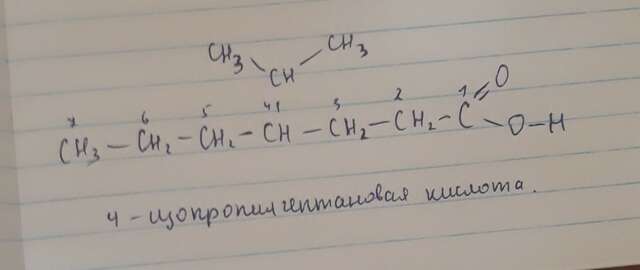 CH3 CH3
CH
7 6 5 4 3 2 1 O
CH3 — CH2 — CH2 — CH — CH2 — CH2 — C — O — H
4 - изопропилгептановая кислота.